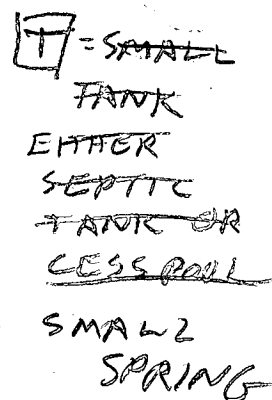 T = SMALL
TANK
EITHER
SEPTIC
TANK OR
CESSPOOL
SMALL
SPRING